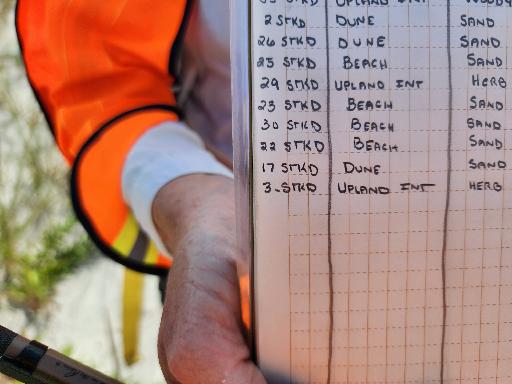 UPLAND INT WOODY
2 STKD DUNE SAND
26 STKD DUNE SAND
25 STKD BEACH SAND
29 STKD UPLAND INT HERB
23 STKD BEACH SAND
30 STKD BEACH SAND
22 STKD BEACH SAND
17 STKD DUNE SAND
3 STKD UPLAND INT HERB